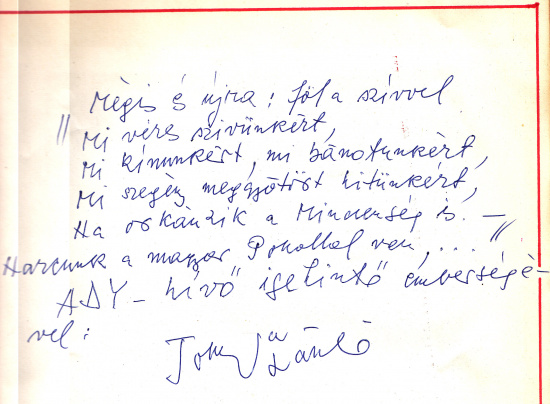 Mégis és újra: föl a szívvel
"Mi véres szivünkért,
Mi kínunkért, mi bánatunkért,
Mi szegény meggyötört hitünkért,
Ha orkánzik a Mindenség is. –
Harcunk a magyar Pokollal van, ..."
ADY – hívő igelintő emberségé-
vel:
László